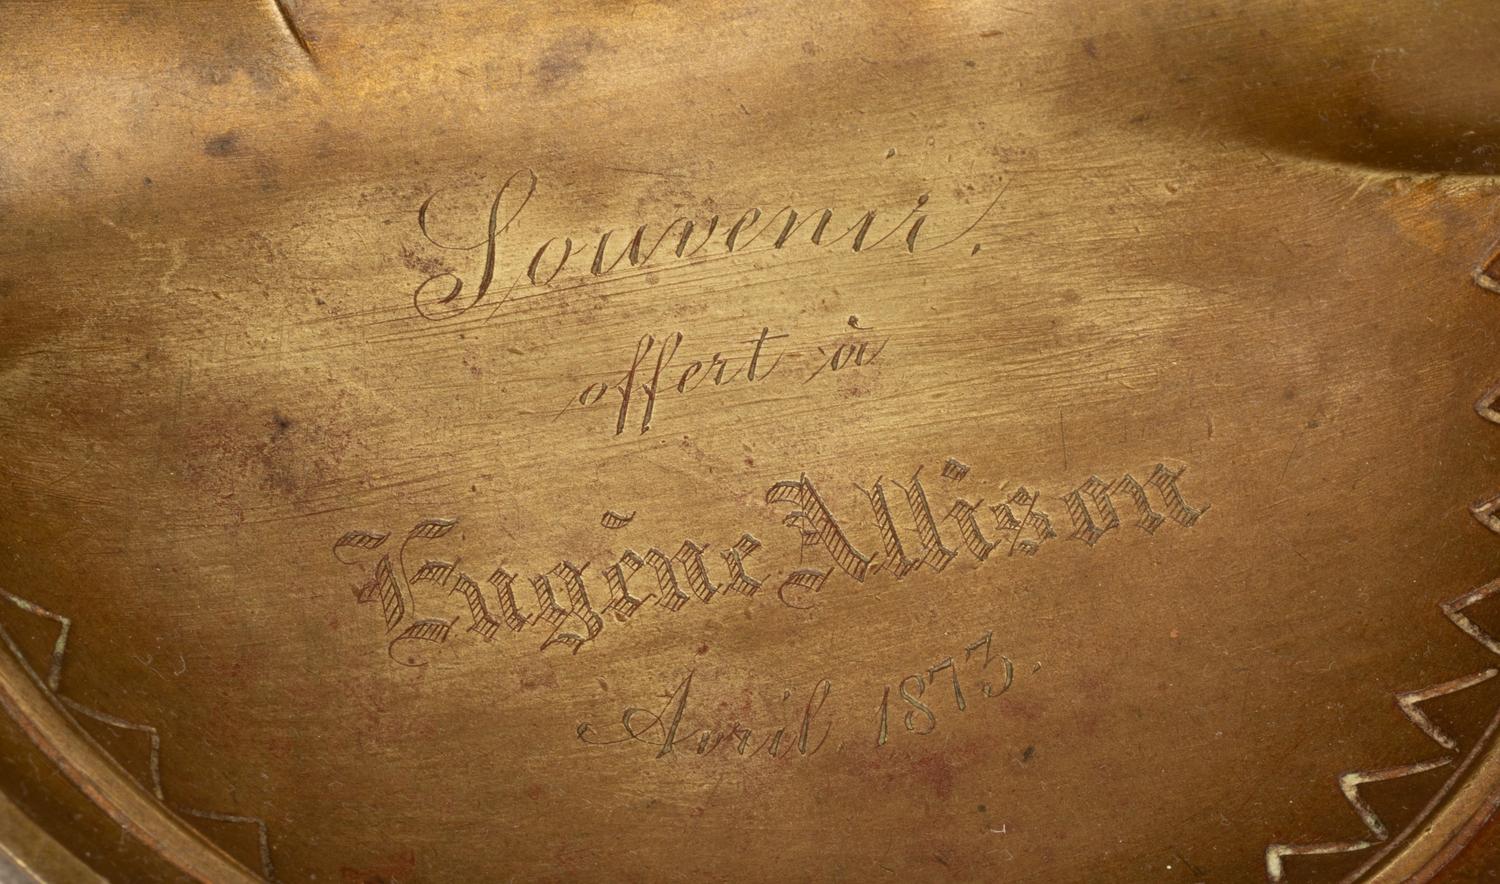 Souvenir.
offert à
Eugène Allison
Avril 1873.